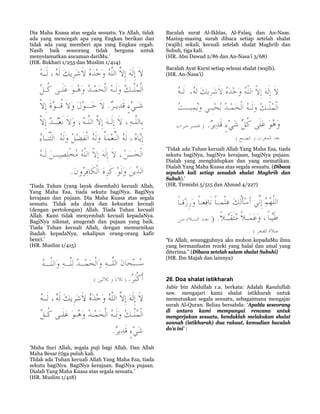 Dia Maha Kuasa atas segala sesuatu. Ya Allah, tidak
ada yang mencegah apa yang Engkau berikan dan
tidak ada yang memberi apa yang Engkau cegah.
Nasib baik seseorang tidak berguna untuk
menyelamatkan ancaman dariMu.'
(HR. Bukhari 1/255 dan Muslim 1/414)
لَا إِلَهَ إِلَّا اللَّهُ وَحْدَهُ لَا شَرِيكَ لَهُ ، لَهُ
الْمُلْكُ وَلَهُ الْحَمْدُ وَهُوَ عَلَى كُلِّ
شَيْءٍ قَدِيرٌ. لَا حَوْلَ وَلَا قُوَّةَ إِلَّا
بِاللَّهِ ، لَا إِلَهَ إِلَّا اللَّهُ ، وَلَا نَعْبُدُ إِلَّا
إِيَّاهُ ، لَهُ النِّعْمَةُ وَلَهُ الْفَضْلُ وَلَهُ الثَّنَاءُ
الْحَسَنُ ، لَا إِلَهَ إِلَّا اللَّهُ مُخْلِصِينَ لَهُ
الدِّينَ وَلَوْ كَرِهَ الْكَافِرُونَ.
'Tiada Tuhan (yang layak disembah) kecuali Allah,
Yang Maha Esa, tiada sekutu bagiNya. BagiNya
kerajaan dan pujaan. Dia Maha Kuasa atas segala
sesuatu. Tidak ada daya dan kekuatan kecuali
(dengan pertolongan) Allah. Tiada Tuhan kecuali
Allah. Kami tidak menyembah kecuali kepadaNya.
BagiNya nikmat, anugerah dan pujaan yang baik.
Tiada Tuhan kecuali Allah, dengan memurnikan
ibadah kepadaNya, sekalipun orang-orang kafir
benci.'
(HR. Muslim 1/415)
سُبْحَانَ اللَّهِ وَالْحَمْدُ لِلَّهِ وَاللَّهُ
أَكْبَرُ. ( ثلاثا و ثلاثين )
لَا إِلَهَ إِلَّا اللَّهُ وَحْدَهُ لَا شَرِيكَ لَهُ ، لَهُ
الْمُلْكُ وَلَهُ الْحَمْدُ وَهُوَ عَلَى كُلِّ
شَيْءٍ قَدِيرٌ.
'Maha Suci Allah, segala puji bagi Allah. Dan Allah
Maha Besar (tiga puluh kali.
Tidak ada Tuhan kecuali Allah Yang Maha Esa, tiada
sekutu bagiNya. BagiNya kerajaan. BagiNya pujaan.
Dialah Yang Maha Kuasa atas segala sesuatu.'
(HR. Muslim 1/418)
Bacalah surat Al-Ikhlas, Al-Falaq, dan An-Naas.
Masing-masing surah dibaca setiap setelah shalat
(wajib) sekali, kecuali setelah shalat Maghrib dan
Subuh, tiga kali.
(HR. Abu Dawud 2/86 dan An-Nasa'i 3/68)
Bacalah Ayat Kursi setiap selesai shalat (wajib).
(HR. An-Nasa'i)
لَا إِلَهَ إِلَّا اللَّهُ وَحْدَهُ لَا شَرِيكَ لَهُ، لَهُ
الْمُلْكُ وَلَهُ الْحَمْدُ يُحْيِيْ وَيُمِيْتُ
وَهُوَ عَلَى كُلِّ شَيْءٍ قَدِيرٌ. ( عشر مرات
بعد المغرب و الصبح )
'Tidak ada Tuhan kecuali Allah Yang Maha Esa, tiada
sekutu bagiNya, bagiNya kerajaan, bagiNya pujaan.
Dialah yang menghidupkan dan yang mematikan.
Dialah Yang Maha Kuasa atas segala sesuatu. (Dibaca
sepuluh kali setiap sesudah shalat Maghrib dan
Subuh).'
(HR. Tirmidzi 5/515 dan Ahmad 4/227)
اَللَّهُمَّ إِنِّي أَسْأَلُكَ عِلْمًا نَافِعًا وَرِزْقًا
طَيِّبًا ، وَعَمَلًا مُتَقَبَّلًا. ( بعد السلام من
صلاة الفجر )
'Ya Allah, sesungguhnya aku mohon kepadaMu ilmu
yang bermanfaatm rezeki yang halal dan amal yang
diterima.' (Dibaca setelah salam shalat Subuh)'
(HR. Ibn Majah dan lainnya)
26. Doa shalat istikharah
Jabir bin Abdullah r.a. berkata: Adalah Rasulullah
saw. mengajari kami shalat istikharah untuk
memutuskan segala sesuatu, sebagaimana mengajar
surah Al-Quran. Beliau bersabda: 'Apabila seseorang
di antara kami mempungai rencana untuk
mengerjakan sesuatu, hendaklah melakukan shalat
sunnah (istikharah) dua rakaat, kemudian bacalah
do'a ini' :